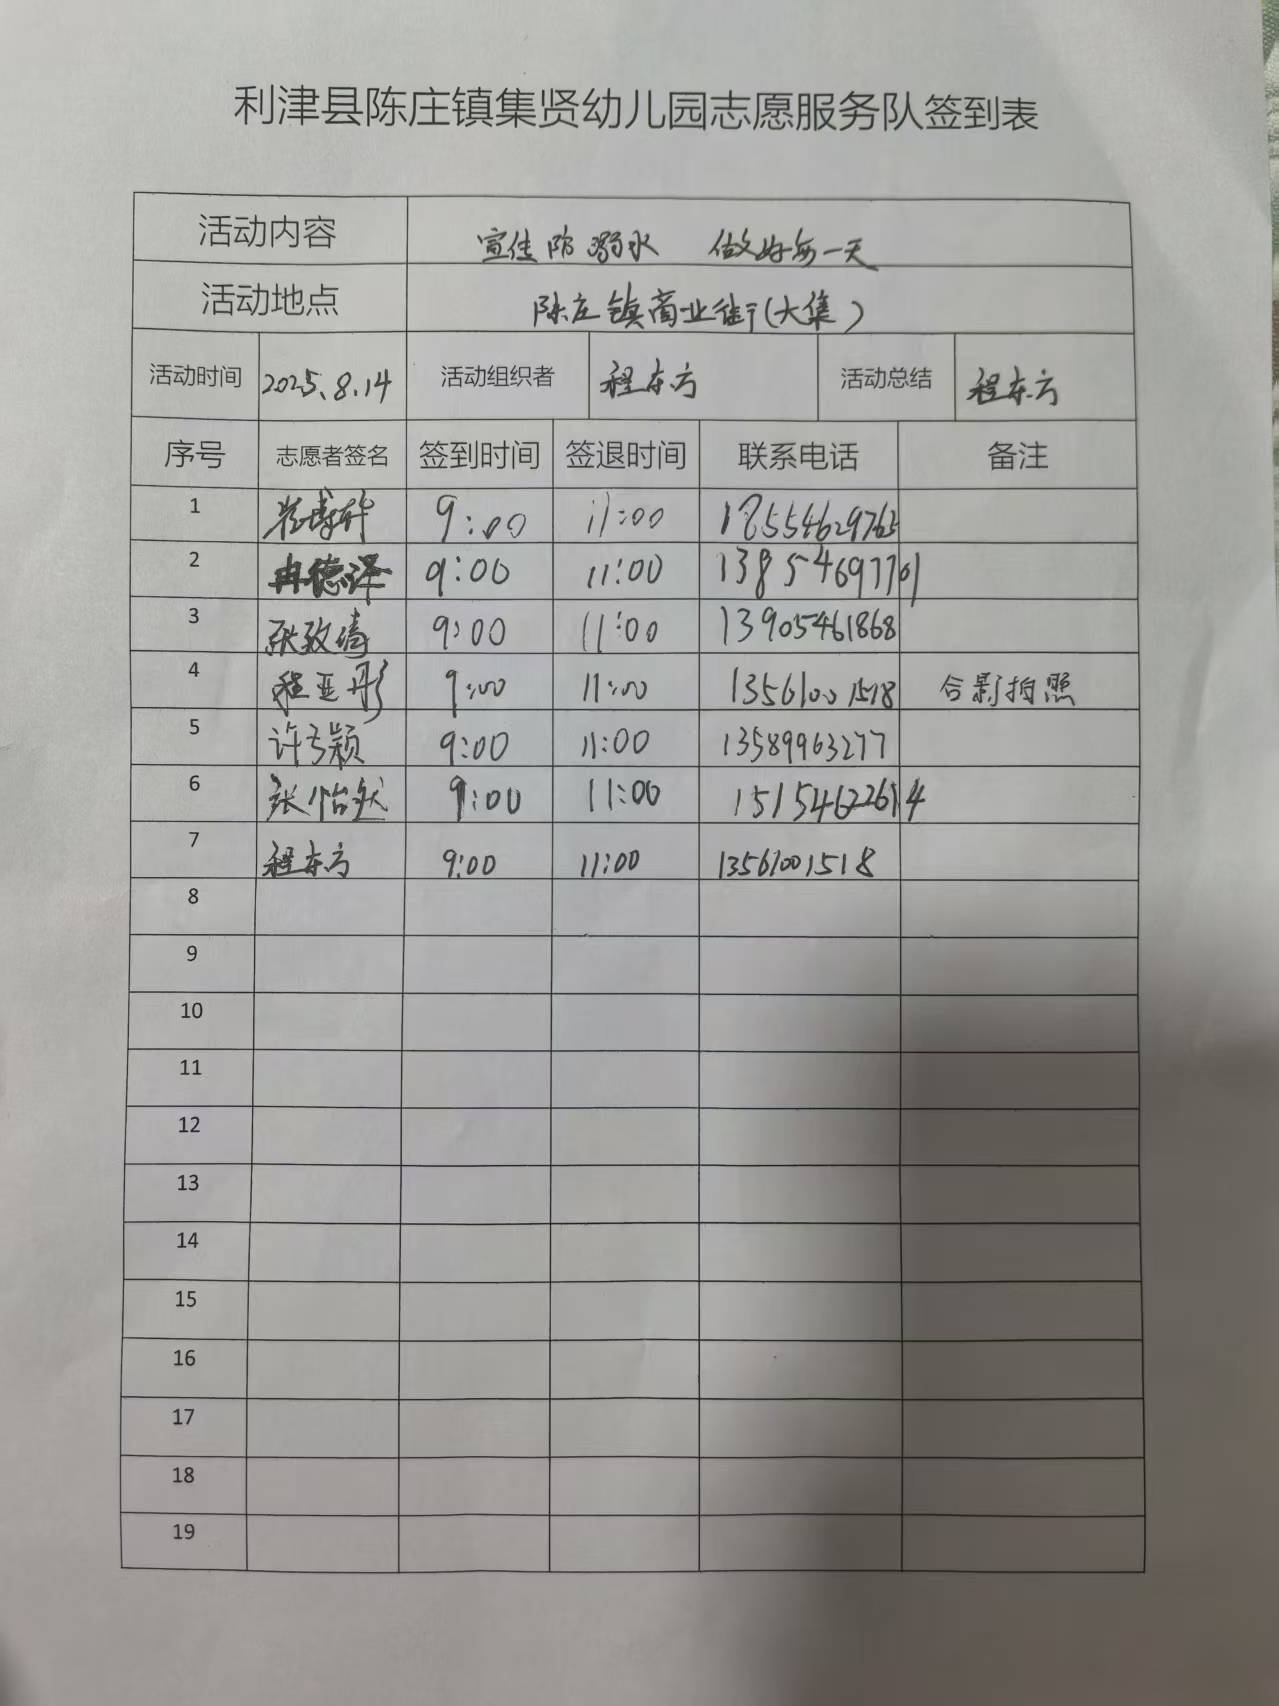 利津县陈庄镇集贤幼儿园志愿服务队签到表
活动内容 宣传防溺水 做好每一天
活动地点 陈庄镇商业街(大集)
活动时间 2025.8.14 活动组织者 程东方 活动总结 程东方
序号 志愿者签名 签到时间 签退时间 联系电话 备注
1 9:00 11:00 18554629763
2 冉德泽 9:00 11:00 13854697701
3 张致清 9:00 11:00 13905461868
4 程亚彤 9:00 11:00 13561001518 合影拍照
5 9:00 11:00 13589963277
6 张怡然 9:00 11:00 15154622614
7 程东方 9:00 11:00 13561001518
8
9
10
11
12
13
14
15
16
17
18
19